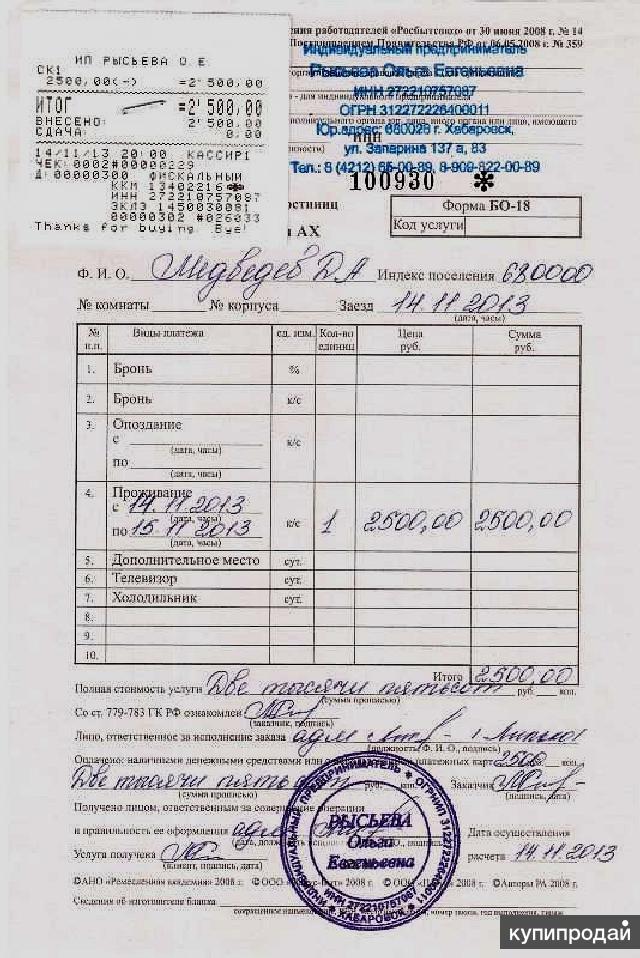 ИП РЫСЬЕВА О.Е.
СК1
2500,00(-) =2'500,00
ИТОГ =2'500,00
ВНЕСЕНО: 2'500,00
СДАЧА: 0.00
14/11/13 20:00 КАССИР1
ЧЕК: 0002#00000229
Д:00000300 ФИСКАЛЬНЫЙ
ККМ 13402216
ИНН 272210757087
ЭКЛЗ 1450030081
00000302 #026033
Thanks for buying. Bye!
работодателей «Росбытсоюз» от 30 июня 2008 г. № 14
Постановлением Правительства РФ от 06.05.2008 г. № 359
Индивидуальный предприниматель
Рысьева Ольга Евгеньевна
ИНН 272210757087
ОГРН 312272226400011
Юр.адрес: 680028 г. Хабаровск,
ул. Запарина 137 а, 83
Тел.: 8 (4212) 65-00-89, 8-909-822-00-89
100930 *
Форма БО-18
Код услуги
АХ
Ф. И. О. Медведев Д А Индекс поселения 680000
№ комнаты № корпуса Заезд 14.11 2013
(дата, часы)
№ п.п. Виды платежа ед. изм. Кол-во единиц Цена руб. Сумма руб.
1. Бронь %
2. Бронь к/с
3. Опоздание
с
(дата, часы)
к/с
по
(дата, часы)
4. Проживание
с 14.11.2013
(дата, часы)
по 15.11 2013 к/с 1 2500,00 2500,00
(дата, часы)
5. Дополнительное место сут.
6. Телевизор сут.
7. Холодильник сут.
8.
9.
10.
Итого 2500,00
Полная стоимость услуги Две тысячи пятьсот руб. коп.
(сумма прописью)
Со ст. 779-783 ГК РФ ознакомлен
(заказчик, подпись)
Лицо, ответственное за исполнение заказа адм
(должность, Ф. И. О., подпись)
Оплачено: наличными денежными средствами или платежных карт 2500 коп.
Две тысячи пятьсот руб. коп. Заказчик
(сумма прописью) (подпись, дата)
Получено лицом, ответственным за совершение операции
и правильность ее оформления адм Дата осуществления
Услуга получена расчета 14.11.2013
(клиент, подпись, дата)
©АНО «Ремесленная академия» 2008 г. ©Авторы РА 2008 г.
Сведения об изготовителе бланка
ИНДИВИДУАЛЬНЫЙ ПРЕДПРИНИМАТЕЛЬ
РЫСЬЕВА
Ольга
Евгеньевна
г. ХАБАРОВСК
купипродай